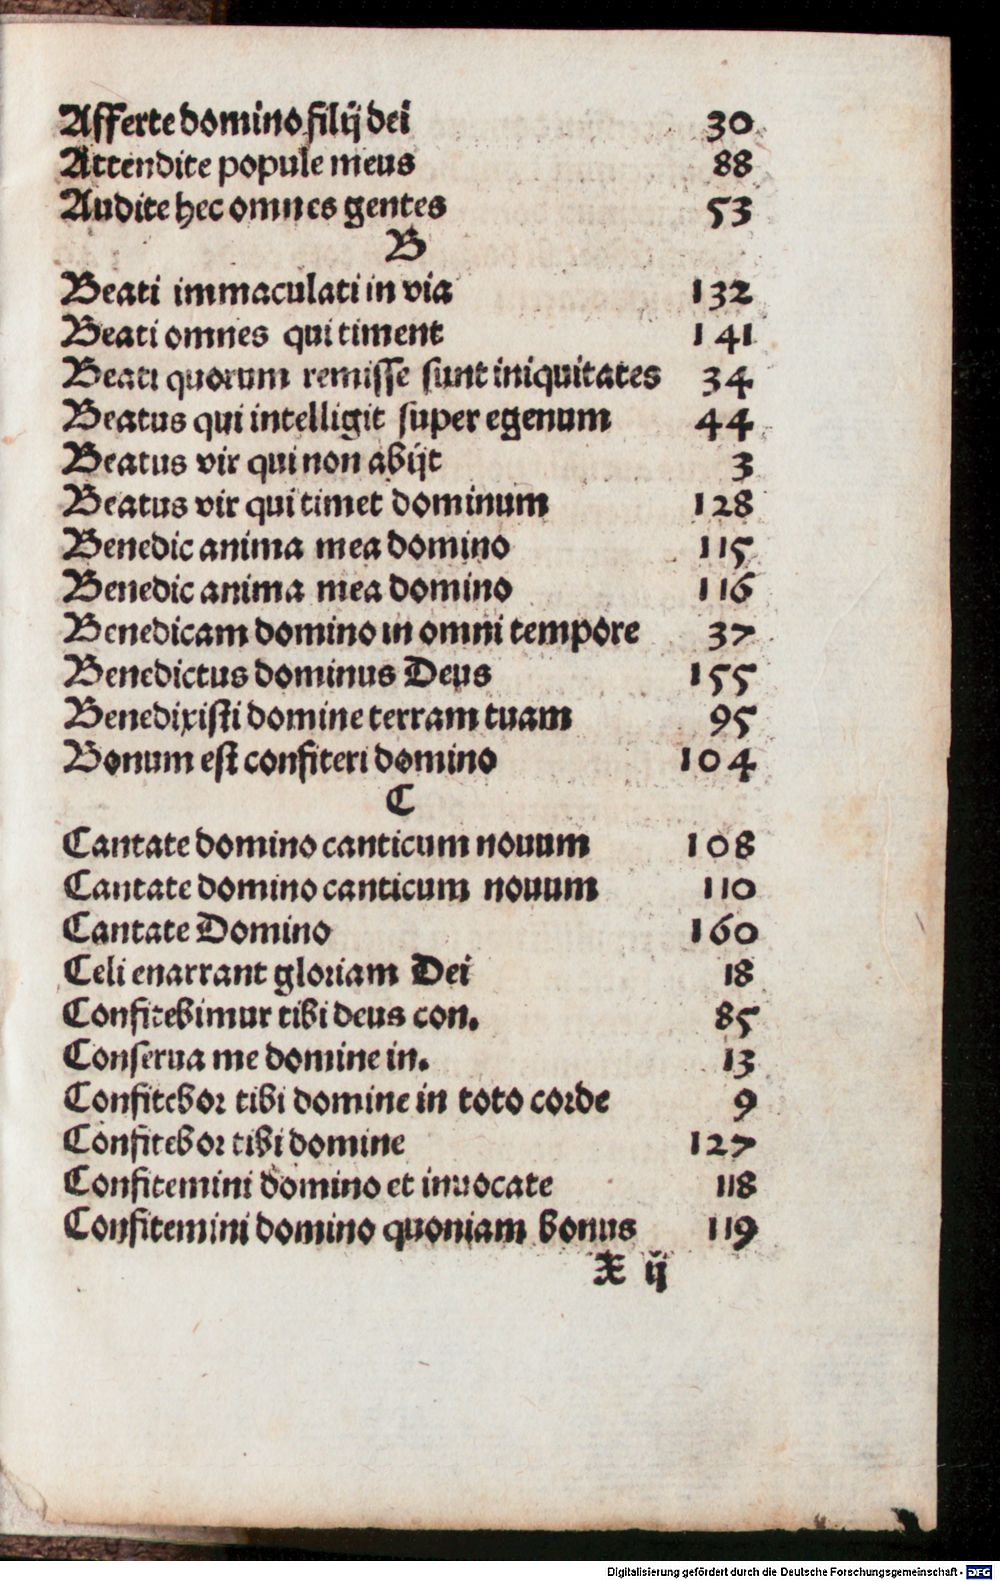 Afferte domino filij dei 30
Attendite popule meus 88
Audite hec omnes gentes 53
B
Beati immaculati in via 132
Beati omnes qui timent 141
Beati quorum remisse sunt iniquitates 34
Beatus qui intelligit super egenum 44
Beatus vir qui non abijt 3
Beatus vir qui timet dominum 128
Benedic anima mea domino 115
Benedic anima mea domino 116
Benedicam domino in omni tempore 37
Benedictus dominus Deus 155
Benedixisti domine terram tuam 95
Bonum est confiteri domino 104
C
Cantate domino canticum nouum 108
Cantate domino canticum nouum 110
Cantate Domino 160
Celi enarrant gloriam Dei 18
Confitebimur tibi deus con. 85
Conserua me domine in. 13
Confitebor tibi domine in toto corde 9
Confitebor tibi domine 127
Confitemini domino et inuocate 118
Confitemini domino quoniam bonus 119
X ij
Digitalisierung gefördert durch die Deutsche Forschungsgemeinschaft - DFG